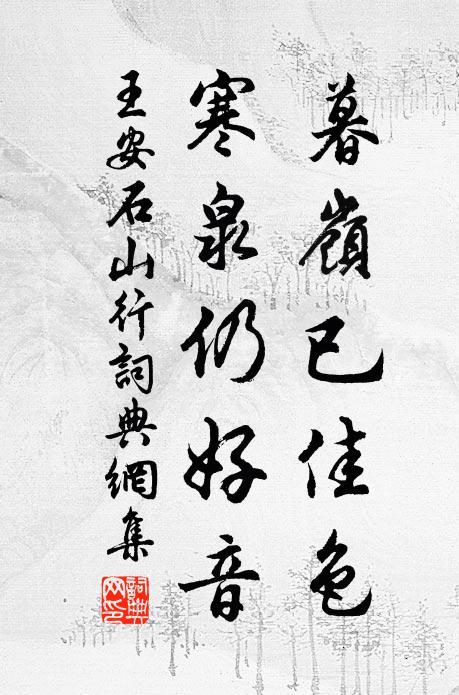 暮嶺已佳色
寒泉仍好音
王安石山行詞典網集